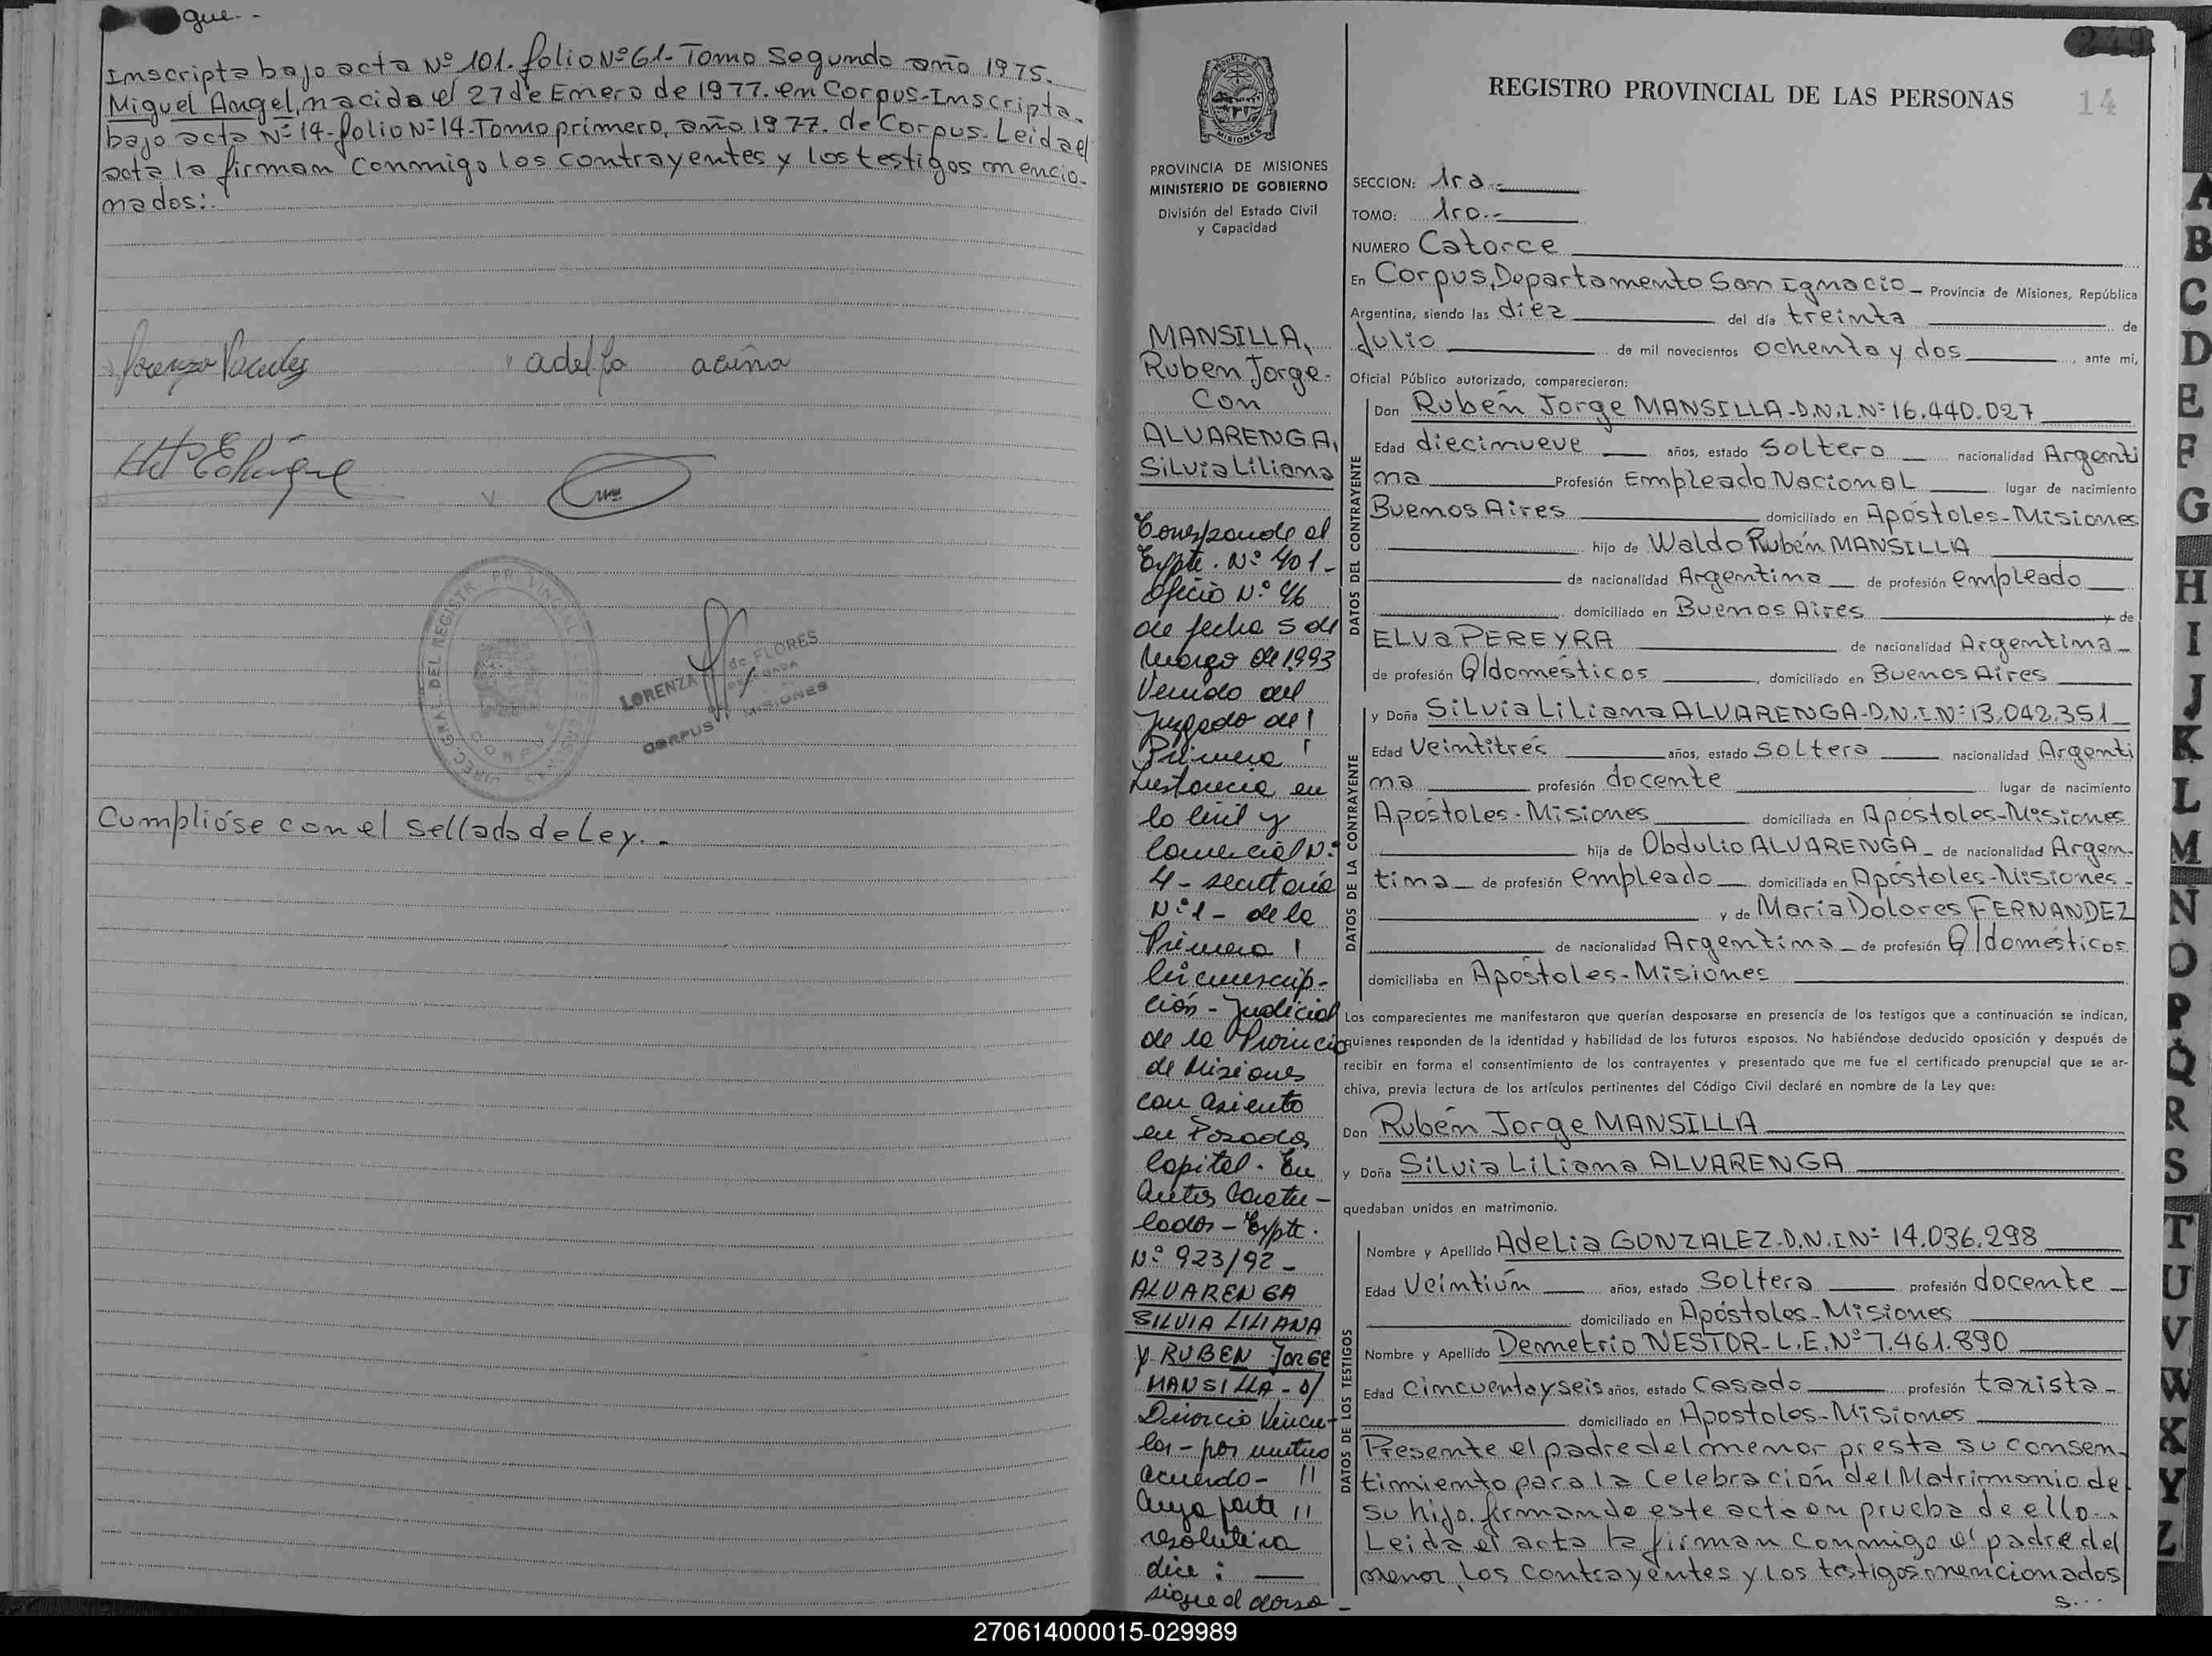 gue--
Inscripta bajo acta Nº 101. folio Nº 61- Tomo Segundo año 1975.
Miguel Angel, nacida el 27 de Enero de 1977. en Corpus-Inscripta
bajo acta Nº 14-folio Nº 14-Tomo primero, año 1977. de Corpus. Leida el
acta la firman conmigo los contrayentes y los testigos mencio-
nados:.
adelfa acuña
CORPUS
LORENZA de FLORES
DELEGADA
CORPUS MISIONES
Cumplióse con el sellado de Ley.-
PROVINCIA DE MISIONES
MINISTERIO DE GOBIERNO
División del Estado Civil
y Capacidad
MANSILLA,
Ruben Jorge-
Con
ALVARENGA,
Silvia Liliana
Corresponde al
Expte. Nº 401-
Oficio Nº 46
de fecha 5 de
Marzo de 1993
Venido del
Juzgado de
Primera
Instancia en
lo Civil y
Comercial Nº
4- secretaría
Nº 1- de la
Primera
Circunscrip-
ción-Judicial
de la Provincia
de Misiones
con asiento
en Posadas
Capital. En
autos Caratu-
lados-Expte.
Nº 923/92-
ALVARENGA
SILVIA LILIANA
y RUBEN JORGE
MANSILLA- s/
Divorcio Vincu-
lar- por mutuo
acuerdo- //
cuya parte //
resolutiva
dice: —
sigue al dorso-
249
REGISTRO PROVINCIAL DE LAS PERSONAS 14
SECCION: 1ra.-
TOMO: 1ro.-
NUMERO Catorce
En Corpus, Departamento San Ignacio- Provincia de Misiones, República
Argentina, siendo las diez del día treinta de
Julio de mil novecientos ochenta y dos, ante mi,
Oficial Público autorizado, comparecieron:
DATOS DEL CONTRAYENTE
Don Rubén Jorge MANSILLA-D.N.I.Nº 16.440.027
Edad diecinueve años, estado Soltero nacionalidad Argenti
na Profesión Empleado Nacional lugar de nacimiento
Buenos Aires domiciliado en Apóstoles-Misiones
hijo de Waldo Rubén MANSILLA
de nacionalidad Argentina de profesión empleado
domiciliado en Buenos Aires y de
ELVA PEREYRA de nacionalidad Argentina
de profesión Q/domésticos, domiciliado en Buenos Aires
DATOS DE LA CONTRAYENTE
y Doña Silvia Liliana ALVARENGA-D.N.I.Nº 13.042.351
Edad Veintitrés años, estado Soltera nacionalidad Argenti
na profesión docente lugar de nacimiento
Apóstoles-Misiones domiciliada en Apóstoles-Misiones
hija de Obdulio ALVARENGA- de nacionalidad Argen-
tina- de profesión empleado domiciliada en Apóstoles-Misiones-
y de María Dolores FERNANDEZ
de nacionalidad Argentina- de profesión Q/domésticos
domiciliaba en Apóstoles-Misiones
Los comparecientes me manifestaron que querían desposarse en presencia de los testigos que a continuación se indican,
quienes responden de la identidad y habilidad de los futuros esposos. No habiéndose deducido oposición y después de
recibir en forma el consentimiento de los contrayentes y presentado que me fue el certificado prenupcial que se ar-
chiva, previa lectura de los artículos pertinentes del Código Civil declaré en nombre de la Ley que:
Don Rubén Jorge MANSILLA
y Doña Silvia Liliana ALVARENGA
quedaban unidos en matrimonio.
DATOS DE LOS TESTIGOS
Nombre y Apellido Adelia GONZALEZ-D.N.I Nº 14.036.298
Edad Veintiún años, estado Soltera profesión docente
domiciliado en Apóstoles-Misiones
Nombre y Apellido Demetrio NESTOR-L.E.Nº 7.461.890
Edad Cincuentayseis años, estado Casado profesión taxista-
domiciliado en Apostoles-Misiones
Presente el padre del menor presta su consen-
timiento para la celebración del Matrimonio de
su hijo. firmando este acto en prueba de ello..
Leida el acta la firman conmigo el padre del
menor, los contrayentes y los testigos mencionados
s...
A
B
C
D
E
F
G
H
I
J
K
L
M
N
O
P
Q
R
S
T
U
V
W
X
Y
Z
270614000015-029989